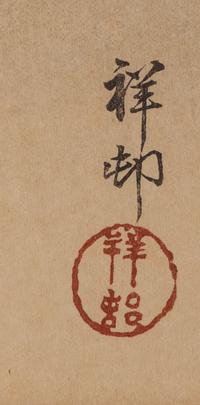 祥邨
祥
邨